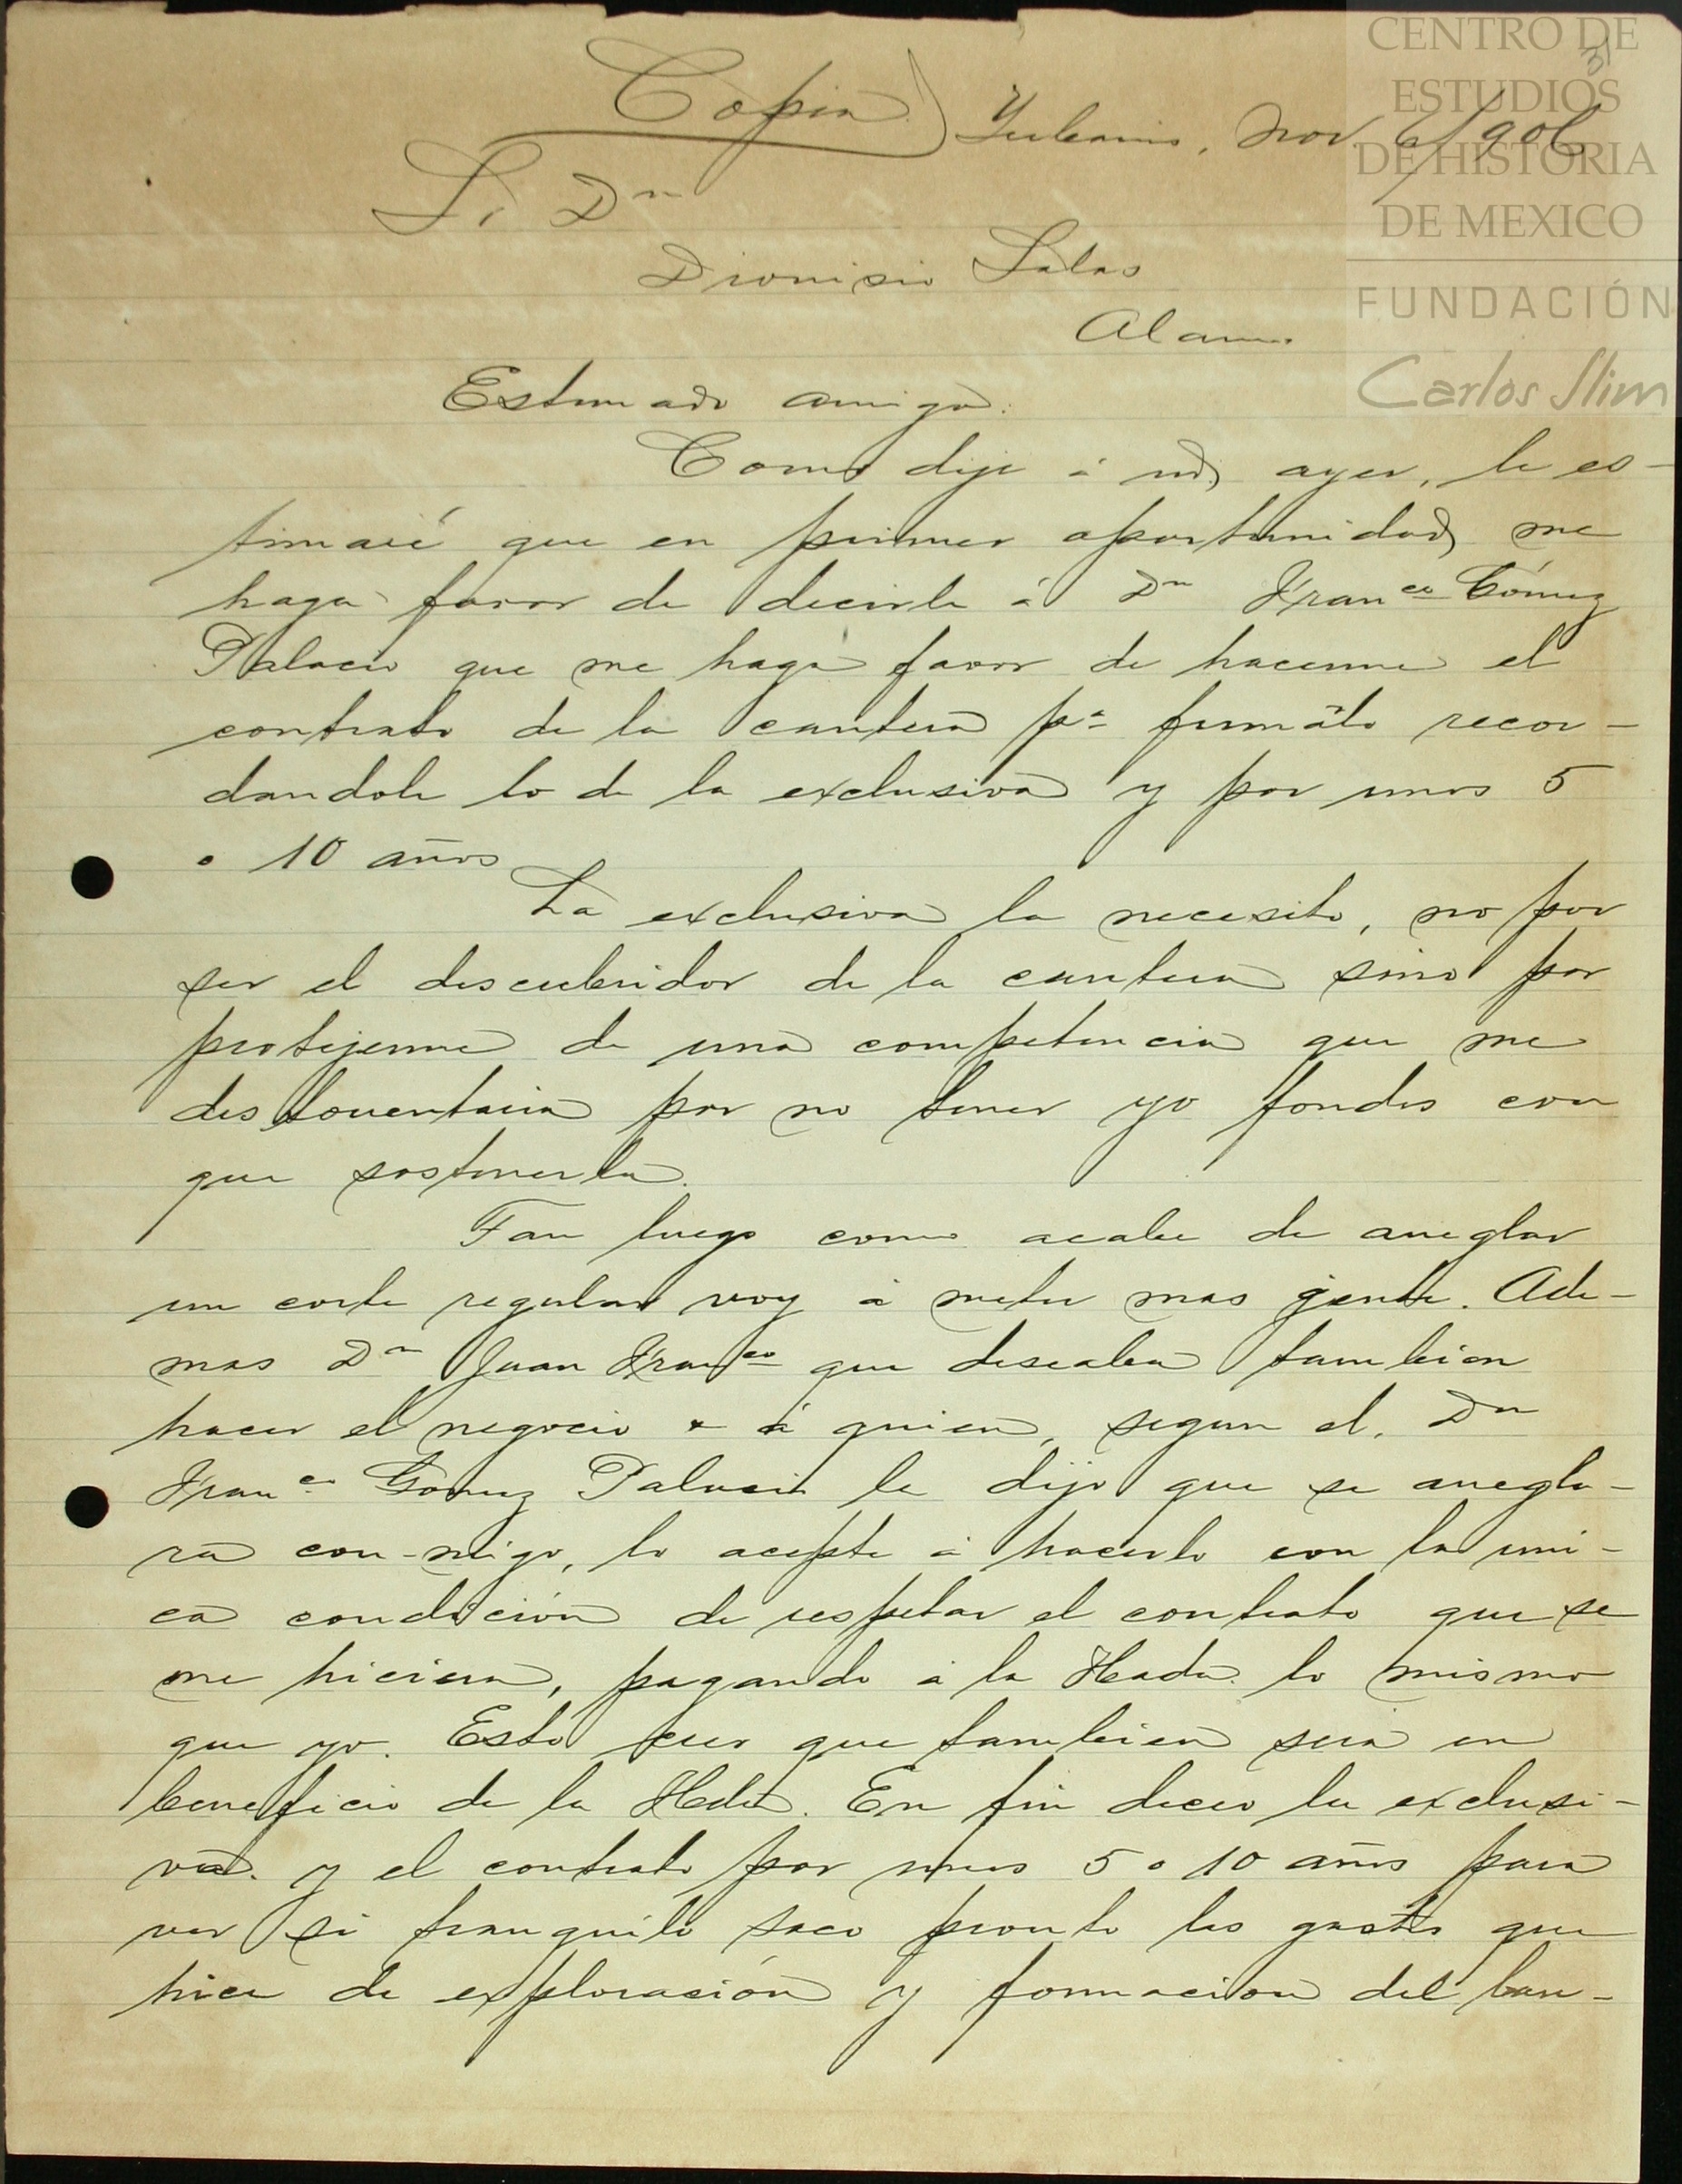 CENTRO DE
ESTUDIOS
DE HISTORIA
DE MEXICO
FUNDACIÓN
Carlos Slim
Copia) Nov 6/906
Sr Dn
Dionisio Salas
Alamo.
Estimado amigo:
Como dije á ud, ayer, le es-
timaré que en primer oportunidad, me
haga favor de decirle á Dn Franco Gómez
Palacio que me haga favor de hacerme el
contrato de la cantera pa firmálo recor-
dandole lo de la exclusiva y por unos 5
o 10 años
La exclusiva la necesito, no por
ser el descubridor de la cantera sino por
protejerme de una competencia que me
desbouentaria por no tener yo fondos con
que sostenerla.
Tan luego como acabe de arreglar
un corte regular voy á meter mas gente. Ade-
mas Dn Juan Franco que deseaba tambien
hacer el negocio á quien, segun el, Dn
Franco Gómez Palacio le dijo que se arregla-
ra con-migo, lo acepte á hacerlo con la uni-
ca condición de respetar el contrato que se
me hiciera, pagando á la Hada. lo mismo
que yo. Esto creo que tambien será en
beneficio de la Hda. En fin deceo la exclusi-
va. y el contrato por unos 5 o 10 años para
ver si tranquilo saco pronto los gastos que
hice de exploración y formacion del ban-